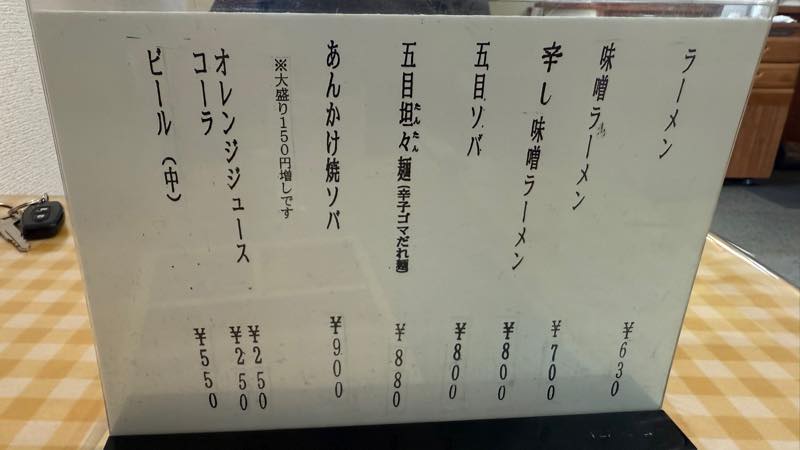 ラーメン ¥630
味噌ラーメン ¥700
辛し味噌ラーメン ¥800
五目ソバ ¥800
五目坦々麺(辛子ゴマだれ麺) ¥880
たんたん
あんかけ焼ソバ ¥900
※大盛り150円増しです
オレンジジュース ¥250
コーラ ¥250
ビール(中) ¥550